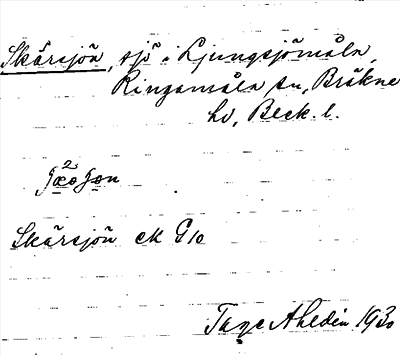 Skärsjön, sjö i Ljungsjömåla,
Ringamåla sn, Bräkne
hd, Blek. l.
Skärsjön ek G10
Tage Ahldin 1930